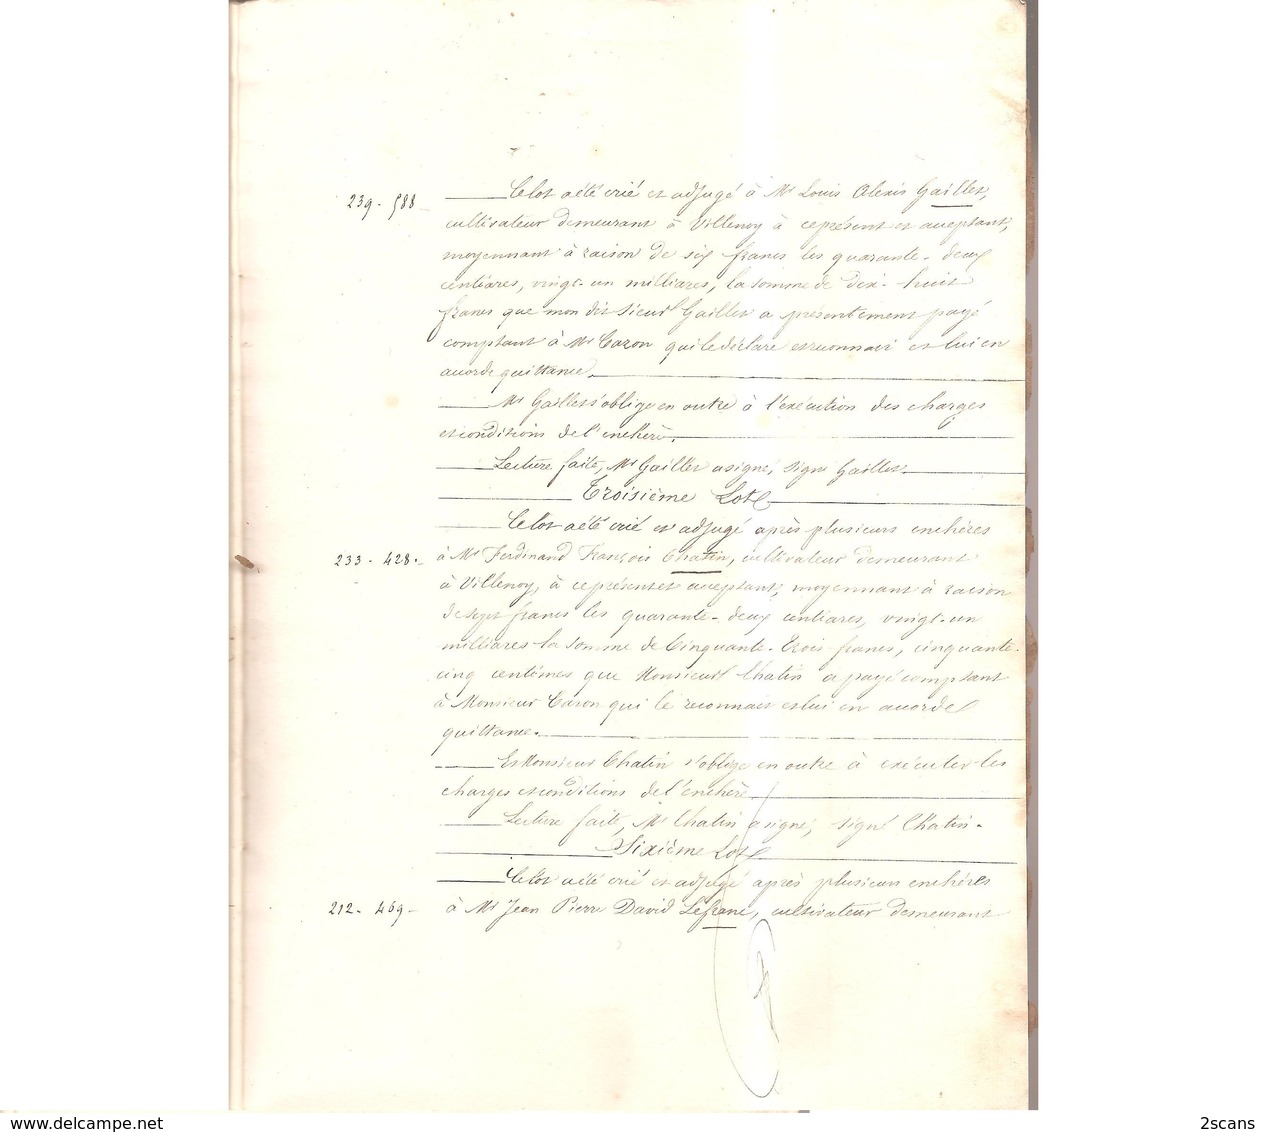 239 - 588 Ce lot a été crié et adjugé à Mr Louis Alexis Gaillet,
cultivateur demeurant à Villenoy à ce présent et acceptant,
moyennant à raison de six francs les quarante-deux
centiares, vingt-un milliares, la somme de dix-huit
francs que mon dit sieur Gaillet a présentement payé
comptant à Mr Caron qui le déclare et reconnait et lui en
accorde quittance.
Mr Gaillet s'oblige en outre à l'exécution des charges
et conditions de l'enchère.
Lecture faite, Mr Gaillet a signé, signé Gaillet
Troisième Lot
Ce lot a été crié et adjugé après plusieurs enchères
233 - 428. à Mr Ferdinand François Chatin, cultivateur demeurant
à Villenoy, à ce présent et acceptant, moyennant à raison
de sept francs les quarante-deux centiares, vingt-un
milliares la somme de Cinquante-trois francs, cinquante-
cinq centimes que Monsieur Chatin a payé comptant
à Monsieur Caron qui le reconnait et lui en accorde
quittance.
Et Monsieur Chatin s'oblige en outre à exécuter les
charges et conditions de l'enchère
Lecture faite, Mr Chatin a signé, signé Chatin.
Sixième Lot
Ce lot a été crié et adjugé après plusieurs enchères
212 - 469 - à Mr Jean Pierre David Lefranc, cultivateur demeurant
www.delcampe.net
2scans